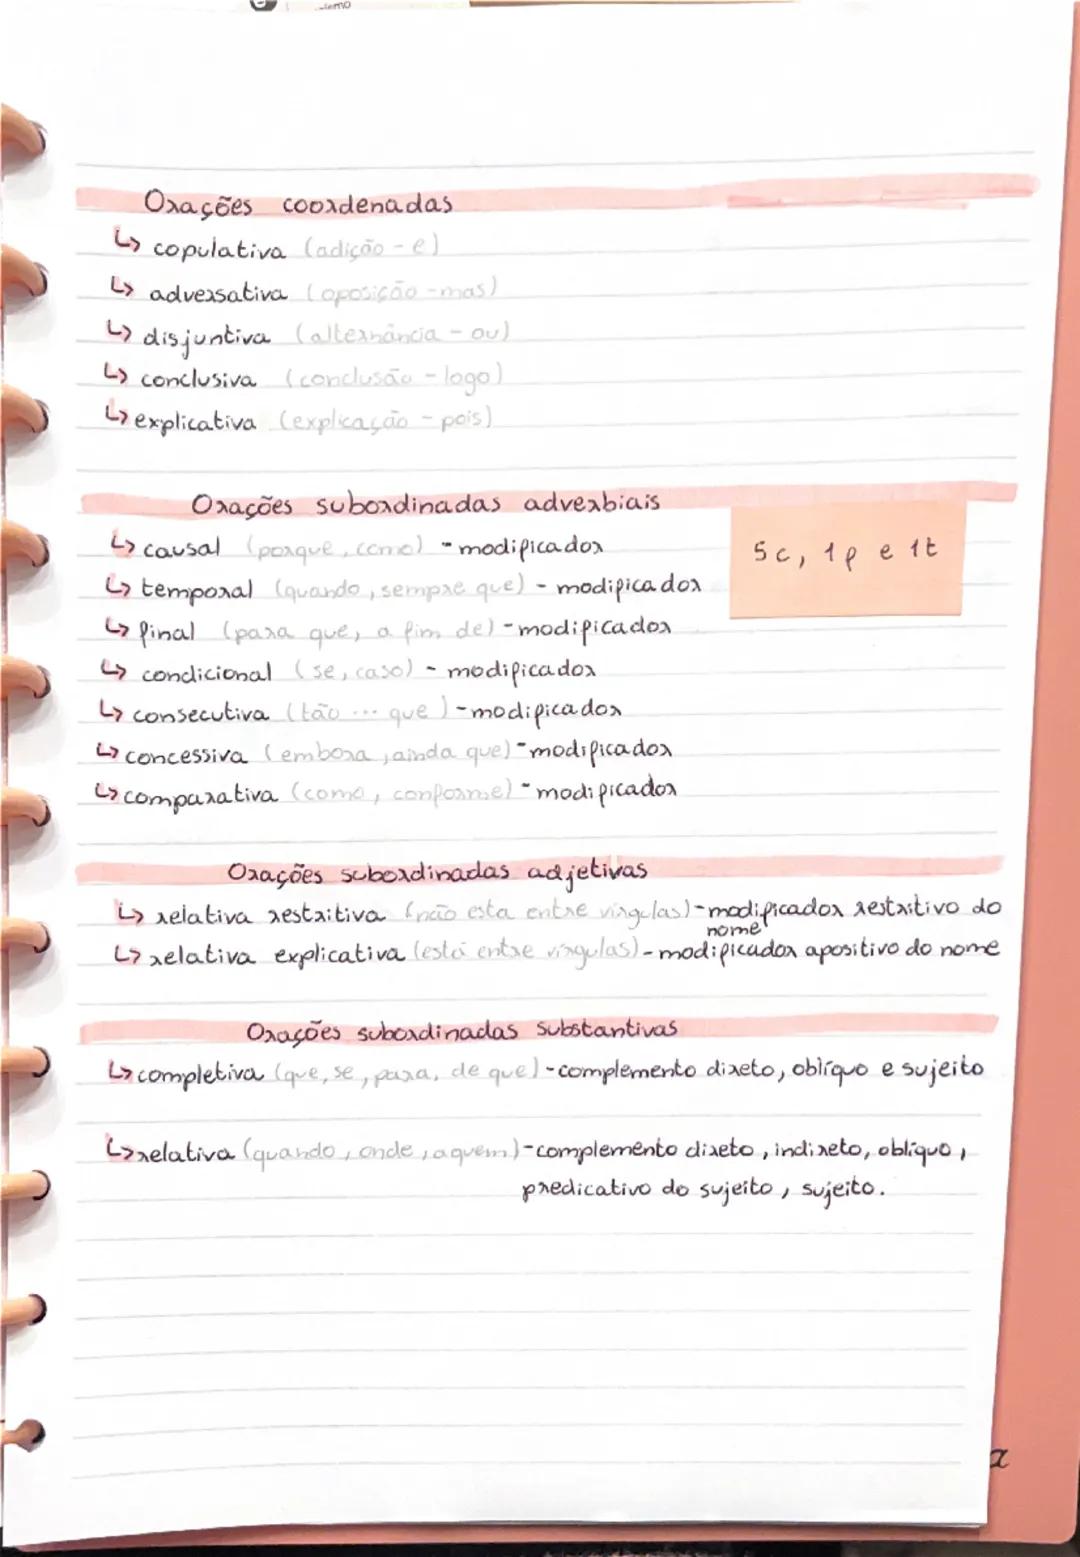 Orações coordenadas
↳ copulativa (adição - e)
↳ adversativa (oposição - mas)
↳ disjuntiva (alternância - ou)
↳ conclusiva (conclusão - logo)
↳ explicativa (explicação - pois)
Orações subordinadas adverbiais
↳ causal (porque, como) - modificador
5c, 1f e 1t
↳ temporal (quando, sempre que) - modificador
↳ final (para que, a fim de) - modificador
↳ condicional (se, caso) - modificador
↳ consecutiva (tão ... que) - modificador
↳ concessiva (embora, ainda que) - modificador
↳ comparativa (como, conforme) - modificador
Orações subordinadas adjetivas
↳ relativa restritiva (não esta entre vírgulas) - modificador restritivo do
nome
↳ relativa explicativa (está entre vírgulas) - modificador apositivo do nome
Orações subordinadas substantivas
↳ completiva (que, se, para, de que) - complemento direto, oblíquo e sujeito
↳ relativa (quando, onde, a quem) - complemento direto, indireto, oblíquo,
predicativo do sujeito, sujeito.